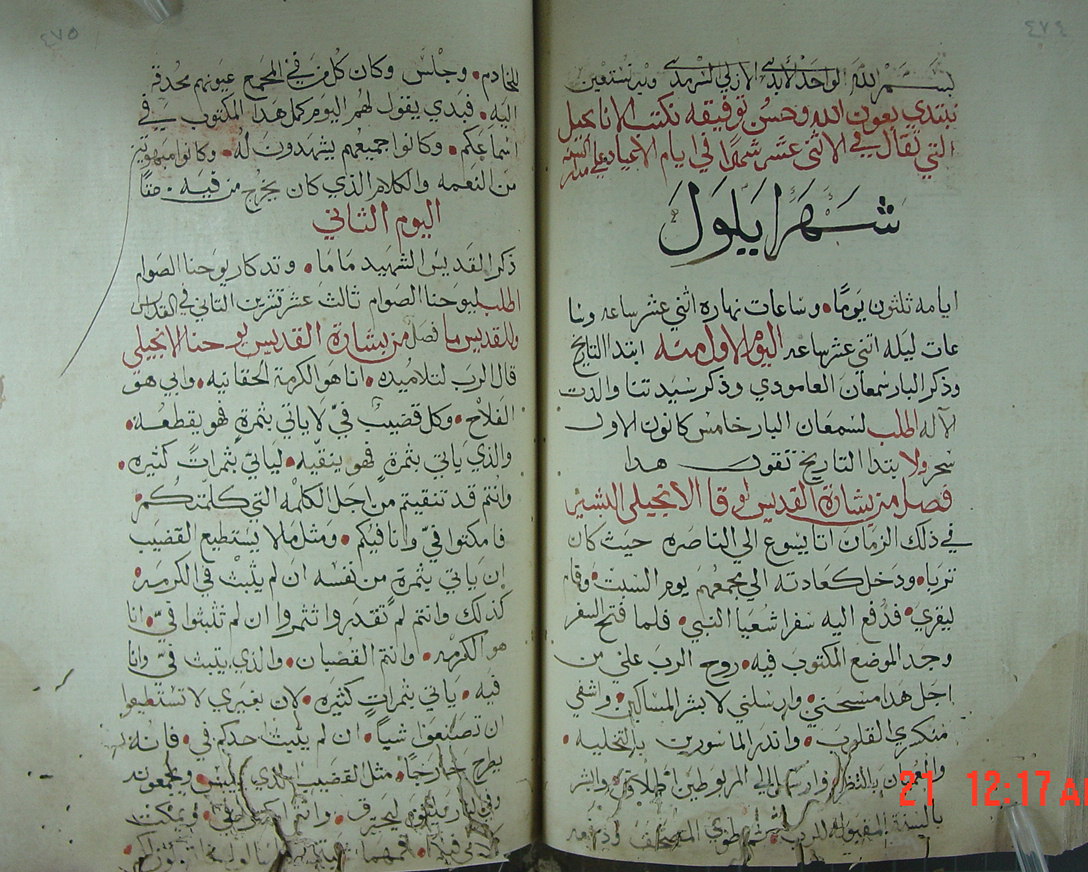 ٤٧٤
بسم الله الواحد الابدى الازلى السرمدى وبه نستعين
نبتدي بعون الله وحسن توفيقه نكتب الاناجيل
التي تقال في الاثنى عشر شهرًا في ايام الاعياد على مدار السنه
شهر ايلول
ايامه ثلثون يومًا • وساعات نهاره اثني عشر ساعه وسا
عات ليله اثني عشر ساعه اليوم الاول منه ابتدا التاريخ
وذكر البار سمعان العامودي وذكر سيدتنا والدت
الآله اطلب لسمعان البار خامس كانون الاول
سحر ولابتدا التاريخ تقول هدا
فصل من بشارة القديس لوقا الانجيلى البشير
في ذلك الزمان اتا يسوع الي الناصره حيث كان
تربا • ودخل كعادته الي مجمعهم يوم السبت • وقام
ليقري • فدفع اليه سفر اشعيا النبي • فلما فتح السفر
وجد الموضع المكتوب فيه • روح الرب علي من
اجل هدا مسحني • وارسلني لابشر المساكين • واشفي
منكسري القلوب • واندر الماسورين بالتخليه •
والعميان بالنظر • وارسل المربوطين وابشر
بالسنة المقبوله للرب طوي المصحف ودفعه
٤٧٥
للخادم • وجلس وكان كل من في المجمع عيونهم محدقة
اليه • فبدي يقول لهم اليوم كمل هدا المكتوب في
اسماعكم • وكانوا جميعهم يشهدون له • وكانوا مبهوتين
من النعمه والكلام الذي كان يخرج من فيه
اليوم الثاني
ذكر القديس الشهيد ماما • وتدكار يوحنا الصوام
اطلب ليوحنا الصوام ثالث عشر تشرين التاني في القداس
وللقديس ماما فصل من بشارة القديس يوحنا الانجيلي
قال الرب لتلاميده • انا هو الكرمة الحقانيه • وابي هو
الفلاح • وكل قضيب فيّ لا ياتي بثمرةٍ فهو يقطعه •
والذي ياتي بثمرةٍ فهو ينقيه • لياتي بثمراتٍ كثيره •
وانتم قد تنقيتم من اجل الكلمه التي كلمتكم •
فامكثوا فيّ وانا فيكم • ومثل ما لا يستطيع القضيب
ان ياتي بثمرةٍ من نفسه ان لم يثبت في الكرمه •
كذلك وانتم لم تقدروا تثمروا ان لم تثبتوا فيّ • انا
هو الكرمه • وانتم القضبان • والذي يثبت فيّ وانا
فيه • ياتي بثمراتٍ كثيره • لان بغيري لا تستطيعوا
ان تصنعوا شياً • ان لم يثبت احدكم في • فانه
يطرح خارجًا • مثل القضيب الذي ييبس • ويجمعونه
وفي النار يلقوه ليحترق • وانتم